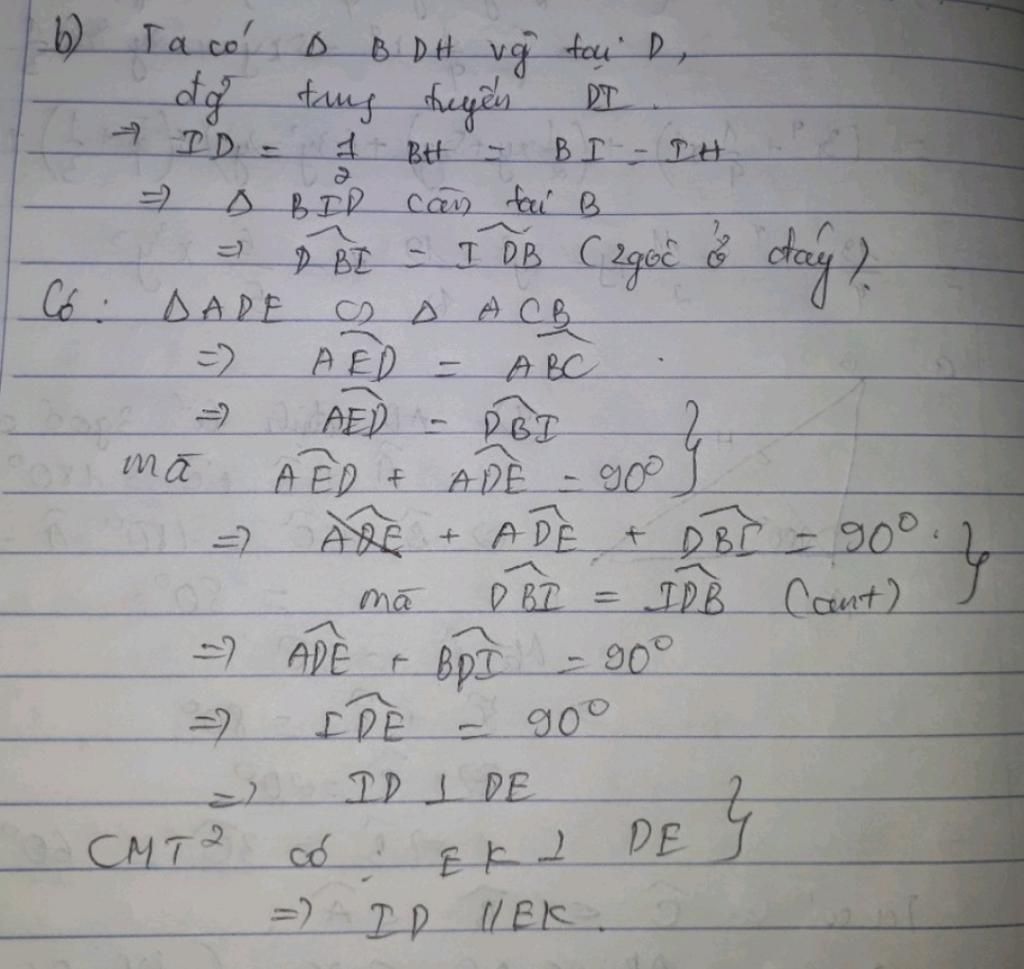 b) Ta có Δ BDH vg̃ tại D,
đg̃ trung tuyến DI.
=> ID = 1/2 BH = BI = IH
=> Δ BID cân tại B
=> DBI^ = IDB^ (2góc ở đáy).
Có: ΔADE ∽ Δ ACB
=> AED^ = ABC^
=> AED^ = DBI^ }
mà AED^ + ADE^ = 90°
=> + ADE^ + DBI^ = 90°. }
mà DBI^ = IDB^ (cmt)
=> ADE^ + BDI^ = 90°
=> IDE^ = 90°
=> ID ⊥ DE }
CMT² có : EK ⊥ DE
=> ID // EK.